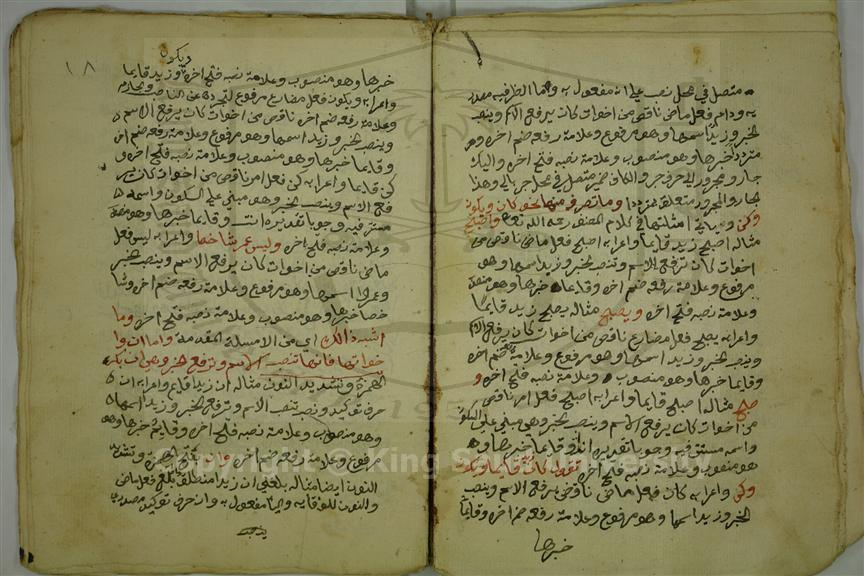 متصل في محل نصب على انه مفعول به وما الظرفيه مصدر
يه ودام فعل ماضي ناقص من اخوات كان يرفع الاسم وينصب
الخبر وزيدا اسمها وهو مرفوع وعلامة رفعه ضم اخره و
مترددا خبرها وهو منصوب وعلامة نصبه فتح اخره واليك
جار ومجرور الى حرف جر والكاف ضمير متصل في محل جر بالى وهذا
الجار والمجرور متعلق بمترددا وما تصرف منها نحو كان ويكون
وكن وياتي امثلتها في كلام المصنف رحمه الله تعالى واصبح
مثاله اصبح زيد قايما واعرابه اصبح فعل ماضي ناقص من
اخوات كان ترفع الاسم وتنصب الخبر وزيد اسمها وهو
مرفوع وعلامة رفعه ضم اخره وقايما خبرها وهو منصوب
وعلامة نصبه فتح اخره ويصبح مثاله يصبح زيد قايما
واعرابه يصبح فعل مضارع ناقص من اخوات كان يرفع الاسم
وينصب الخبر وزيد اسمها وهو مرفوع وعلامة رفعه ضم اخره
وقايما خبرها وهو منصوب وعلامة نصبه فتح اخره و
اصبح مثاله اصبح قايما واعرابه اصبح فعل امر ناقص
من اخوات كان يرفع الاسم وينصب الخبر وهو مبني على السكون
واسمه مستتر فيه وجوبا تقديره انت وقايما خبرها وهو
منصوب وعلامة نصبه فتح اخره تقول كان زيد قايما
وكن واعرابه كان فعل ماضي ناقص يرفع الاسم وينصب
الخبر وزيد اسمها وهو مرفوع وعلامة رفعه ضم اخره وقايما
خبرها
١٨
ويكون
خبرها وهو منصوب وعلامة نصبه فتح اخره زيد قايما
واعرابه ويكون فعل مضارع مرفوع لتجرده عن الناصب والجازم
وعلامة رفعه ضم اخره ناقص من اخوات كان يرفع الاسم
وينصب الخبر وزيد اسمها وهو مرفوع وعلامة رفعه ضم اخره
وقايما خبرها وهو منصوب وعلامة نصبه فتح اخره و
كن قايما واعرابه كن فعل امر ناقص من اخوات كان يرفع
الاسم وينصب الخبر وهو مبني على السكون واسمه
مستتر فيه وجوبا تقديره انت وقايما خبرها وهو منصوب
وعلامة نصبه فتح اخره وليس عمر شاخصا واعرابه ليس فعل
ماضي ناقص من اخوات كان يرفع الاسم وينصب الخبر
وعمر اسمها وهو مرفوع وعلامة رفعه ضم اخره وشا
خصا خبرها وهو منصوب وعلامة نصبه فتح اخره وما
اشبه ذالك اي من الامسلة المقدمة واما ان وا
خواتها فانها تنصب الاسم وترفع الخبر وهي ان بكسر
الهمزة وتشديد النون مثاله ان زيدا قايم واعرابه ان
حرف توكيد ونصب تنصب الاسم وترفع الخبر وزيدا اسمها
وهو منصوب وعلامة نصبه فتح اخره وقايم خبرها وهو
مرفوع وعلامة رفعه ضم اخره وان بفتح الهمزة وتشديد
النون ايضا مثاله بلغني ان زيدا منطلق بلغ فعل ماضي
والنون للوقايه والياء مفعول به وان حرف توكيد مصدري
Copyright © King Saud University